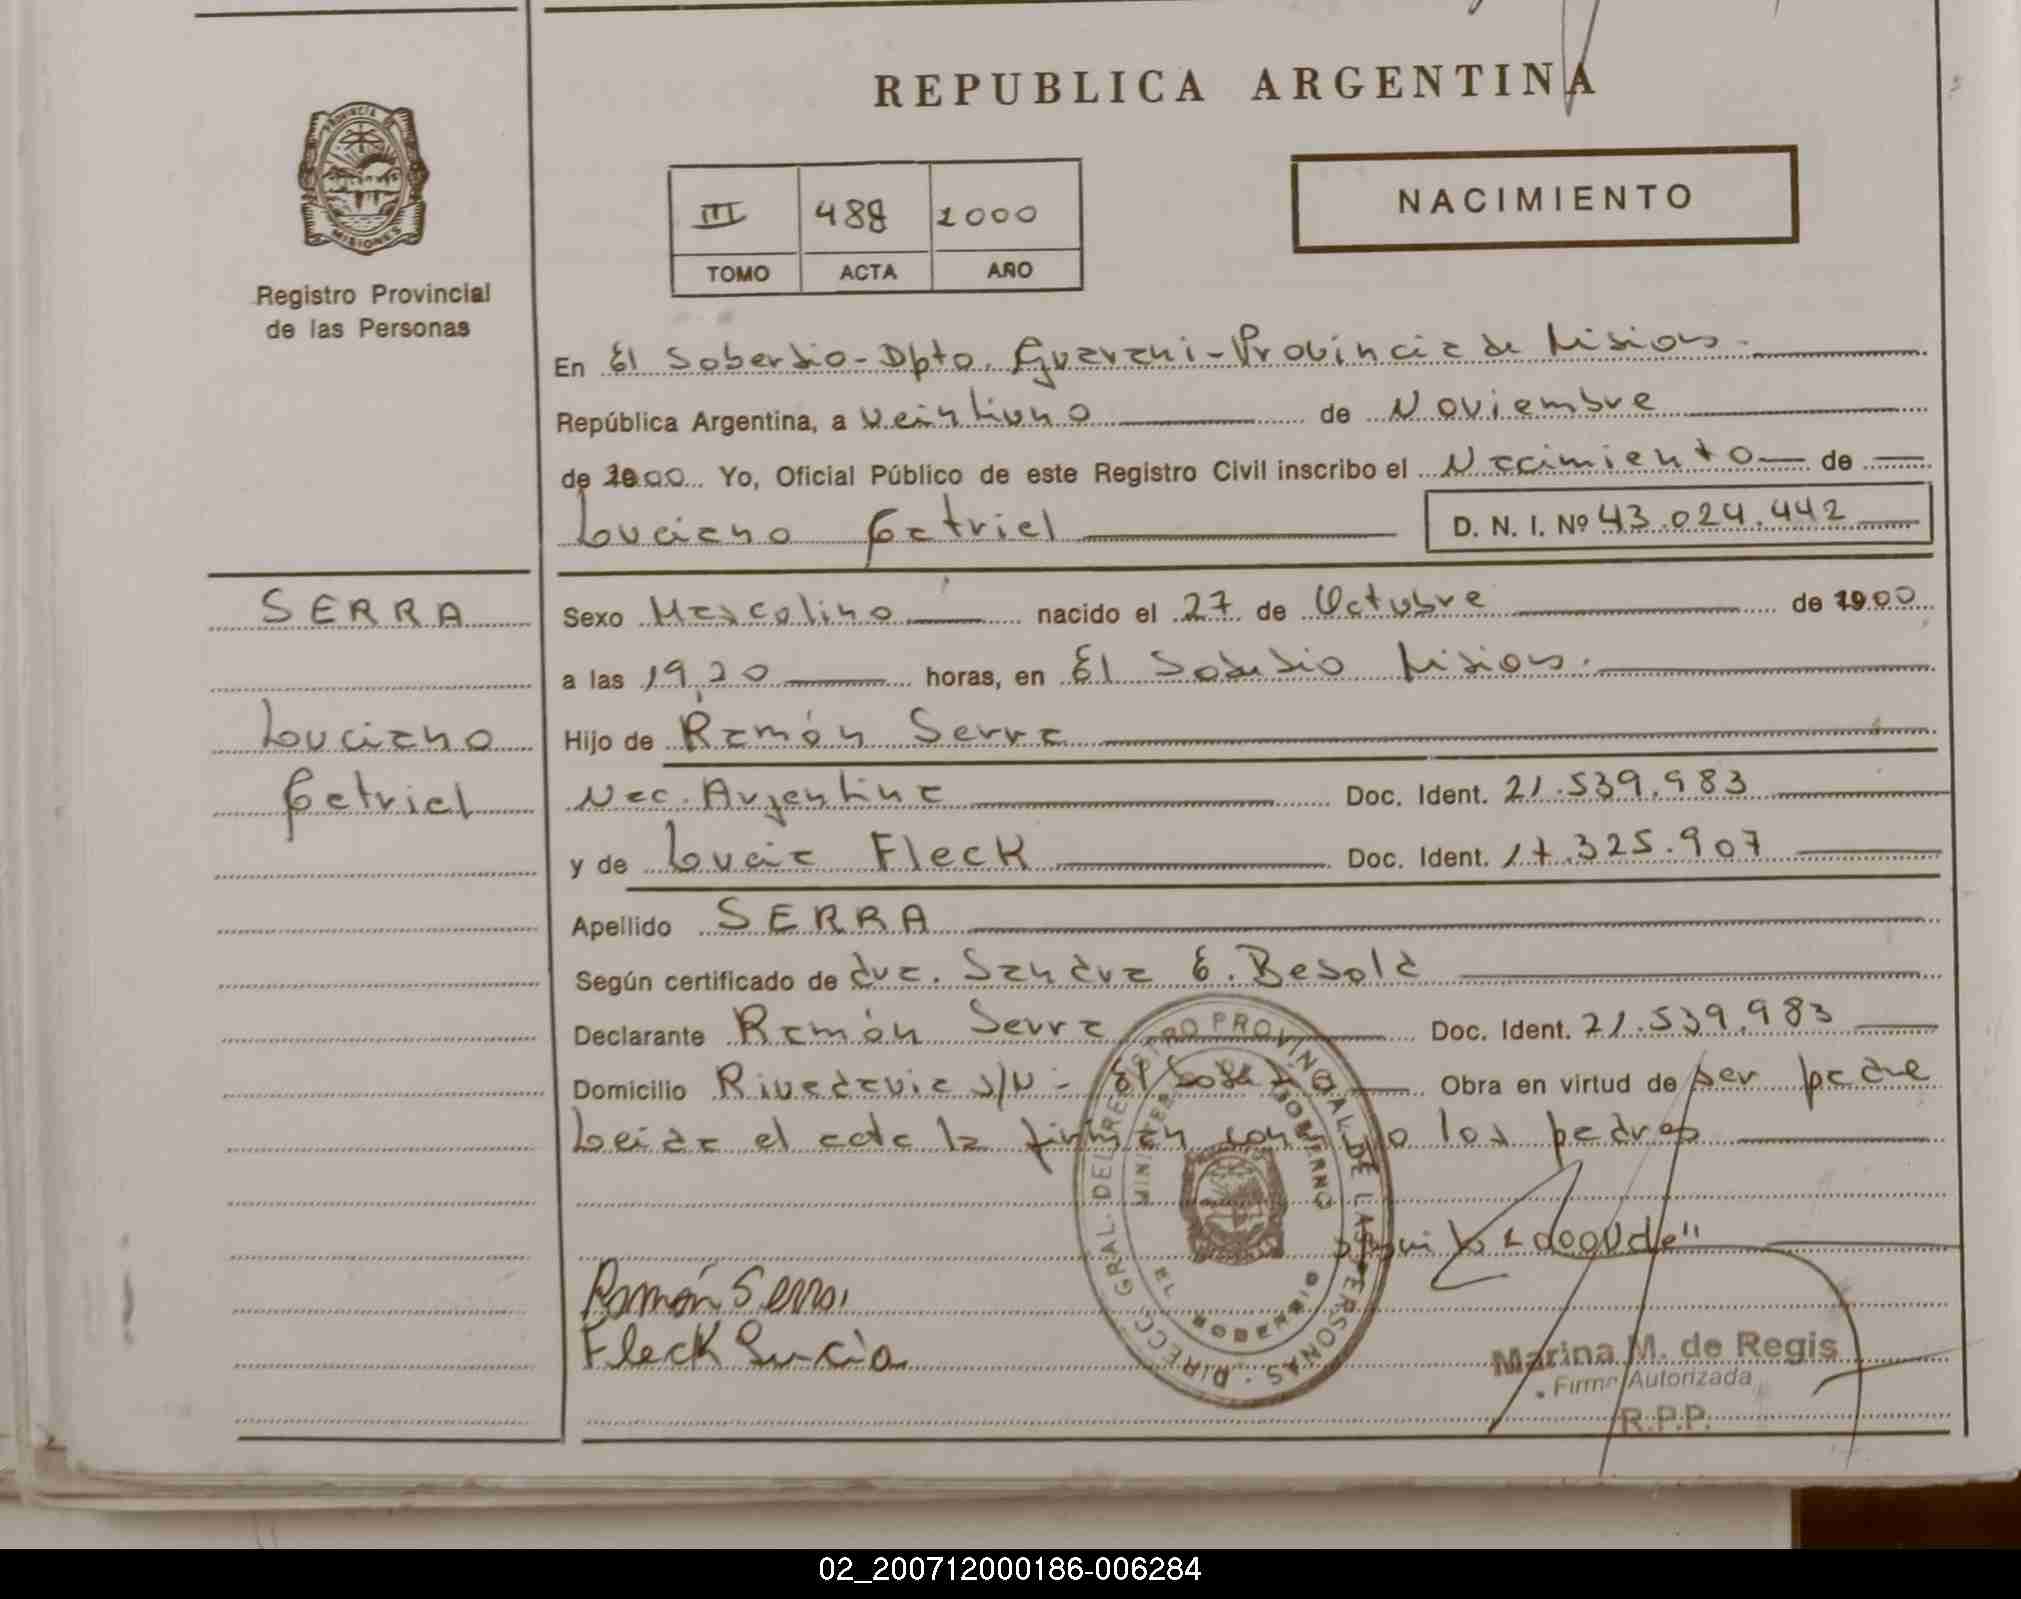 REPUBLICA ARGENTINA
PROVINCIA DE MISIONES
Registro Provincial
de las Personas
III 488 2000
TOMO ACTA AÑO
NACIMIENTO
En El Soberbio - Dpto. Guarani - Provincia de Misiones.
República Argentina, a veintiuno de Noviembre
de 2000 Yo, Oficial Público de este Registro Civil inscribo el Nacimiento de
Luciano Gatriel D. N. I. Nº 43.024.442
SERRA
Luciano
Gatriel
Sexo Masculino nacido el 27 de Octubre de 2000
a las 19,20 horas, en El Soberbio Misiones.
Hijo de Ramón Serra
Nac. Argentina Doc. Ident. 21.539.983
y de Lucia Fleck Doc. Ident. 17.325.907
Apellido SERRA
Según certificado de dra. Sandra E. Besold
Declarante Ramón Serra Doc. Ident. 21.539.983
Domicilio Rivadavia S/N - El Sober Obra en virtud de ser padre
Leida el acta la firman con los padres
DIRECC. GRAL. DEL REGISTRO PROVINCIAL DE LAS PERSONAS
MINISTERIO GOBIERNO
SOBERBIO
Ramón Serra
Fleck Lucia
Marina M. de Regis
Firma Autorizada
R.P.P.
02_200712000186-006284